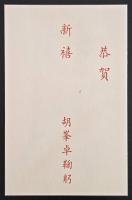 恭賀
新禧
胡峯卓鞠躬